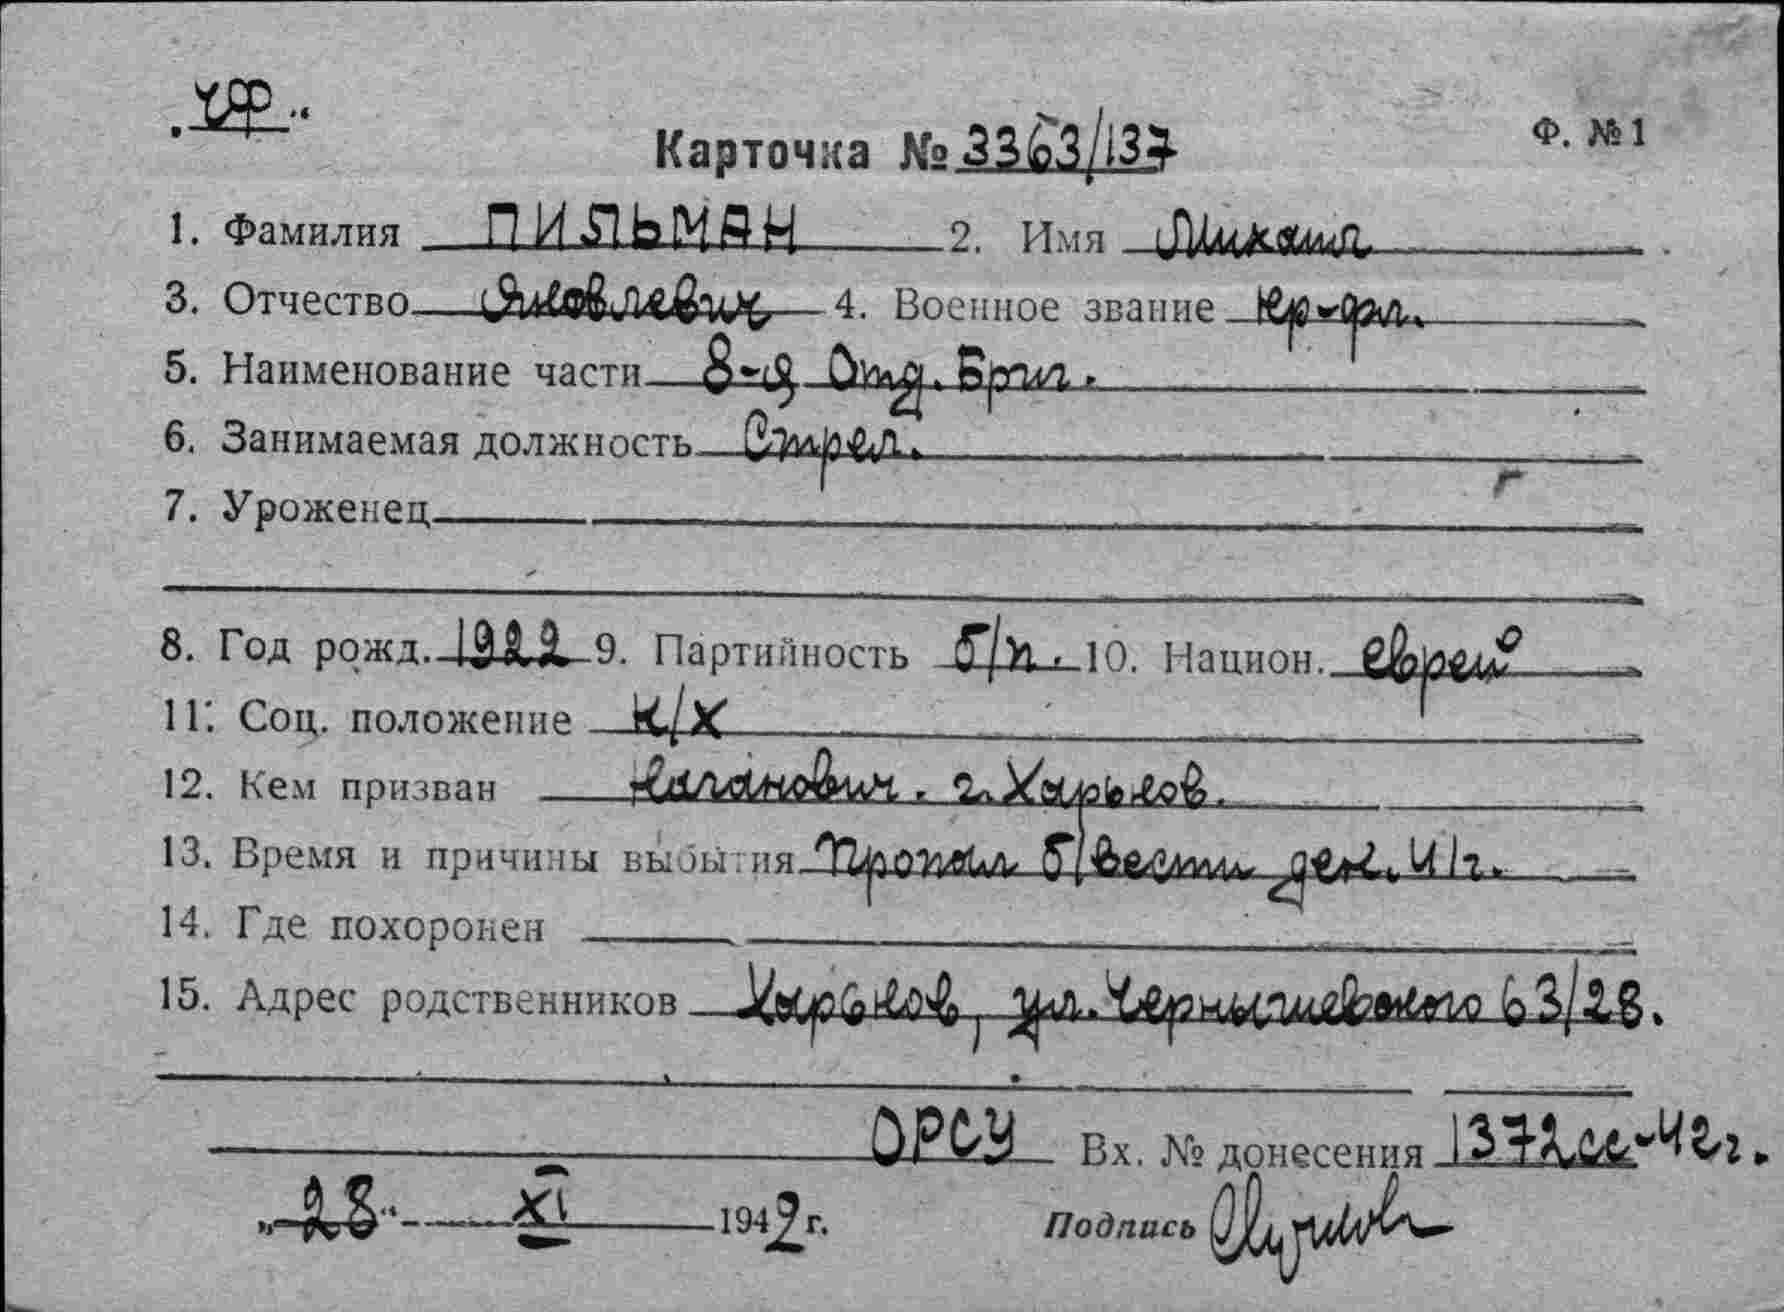 Ф. №1
Карточка № 3363/137
1. Фамилия ПИЛЬМАН 2. Имя Михаил
3. Отчество Яковлевич 4. Военное звание кр-фл.
5. Наименование части 8-я Отд. Бриг.
6. Занимаемая должность Стрел.
7. Уроженец
8. Год рожд. 1922 9. Партийность б/п. 10. Национ. еврей
11. Соц. положение к/х
12. Кем призван Каганович. г. Харьков.
13. Время и причины выбытия Пропал б/вести дек. 41г.
14. Где похоронен
15. Адрес родственников Харьков, ул. Чернышевского 63/28.
ОРСУ Вх. № донесения 1372сс-42г.
„28“ XI 1942г. Подпись